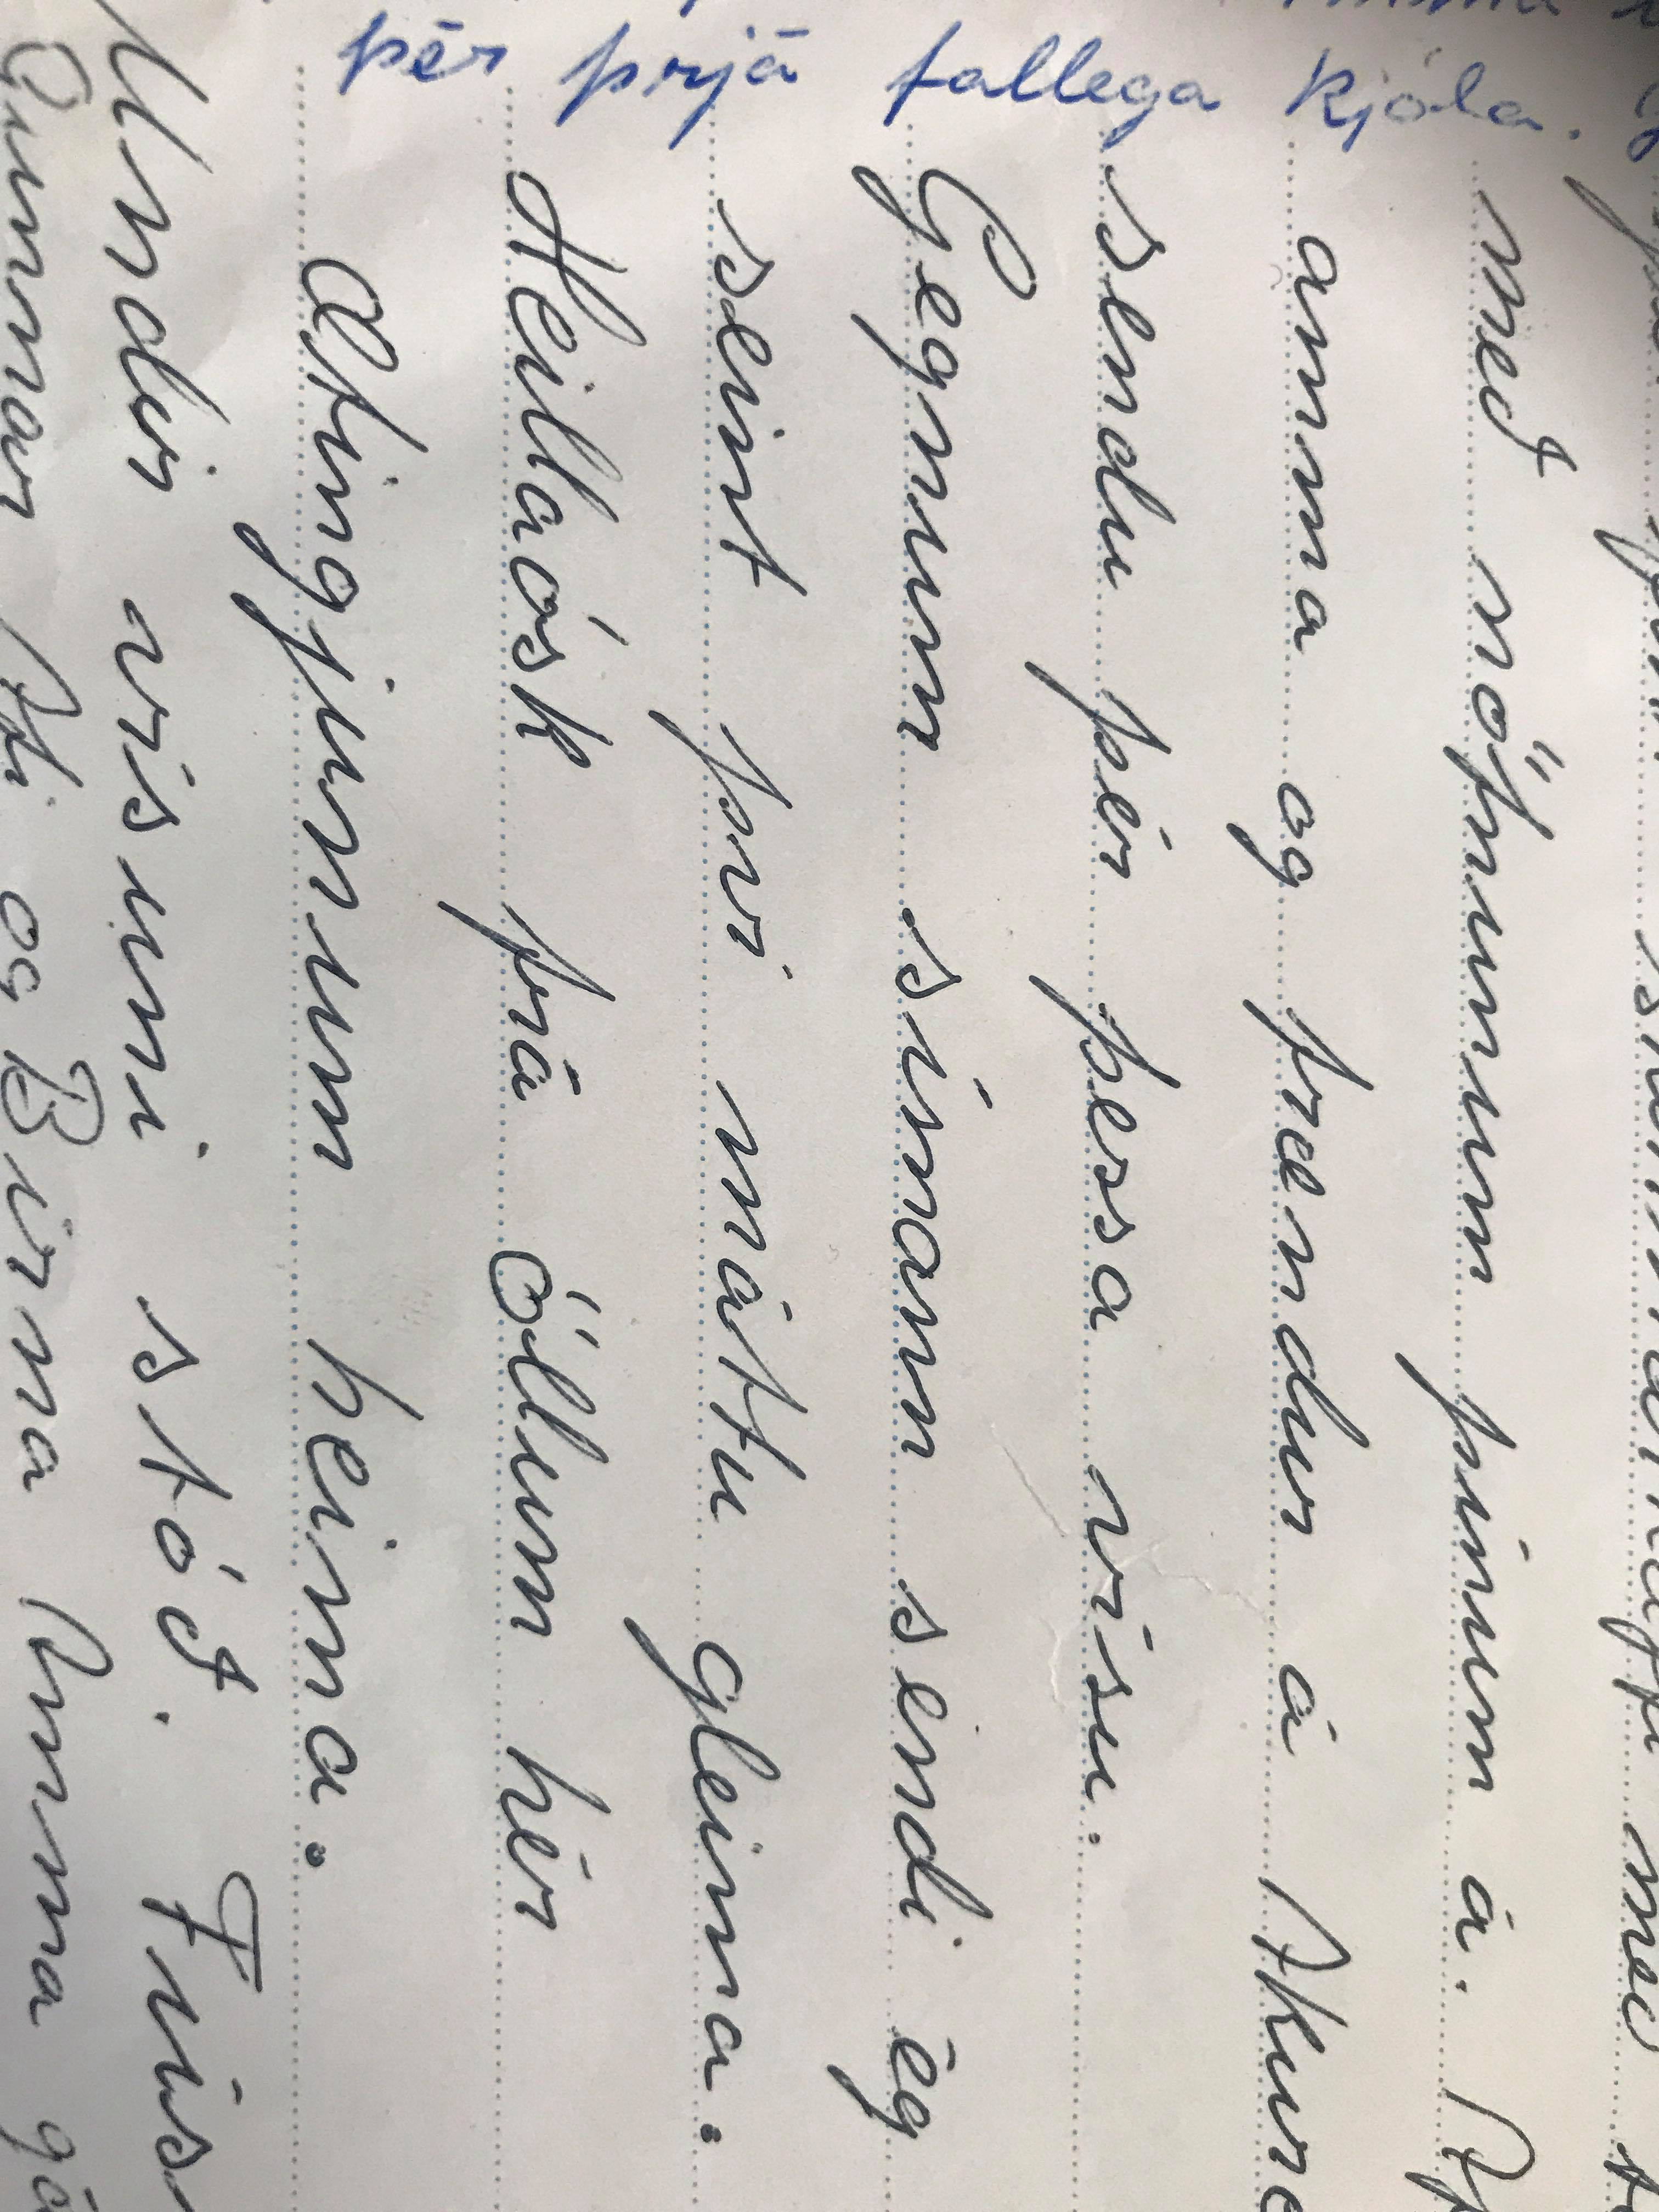 þér þrjá fallega kjóla.
með nöfnunum þínum á.
amma og frændur á
sendu þér þessa vísu.
Gegnum símann sendi ég
seint því máttu gleima.
Heillaósk frá öllum hér
Ættingjunum heima.
Undir vísuni stóð.
og BirnaUnna